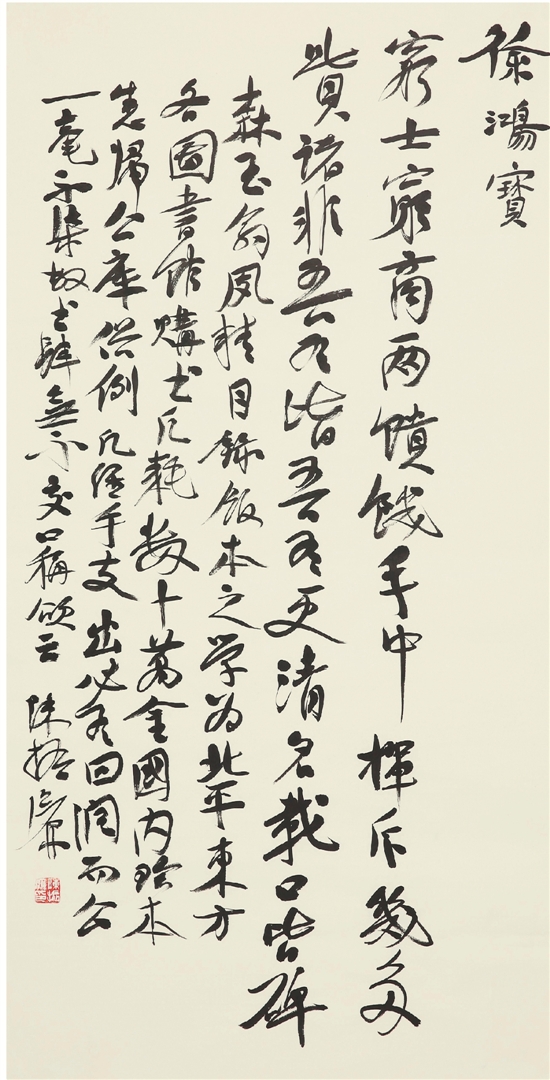 徐鴻寶
窮士窮商兩饋餞手中揮斥幾多
貲諸非吾有皆吾有更清名載口皆碑
森玉翁夙精目錄版本之学為北平東方
各圖書館購书凡耗數十萬金國内珍本
悉歸公庫俗例凡經手支出必有回潤而公
一毫不染故书肆無不交口稱頌云 陳振濂